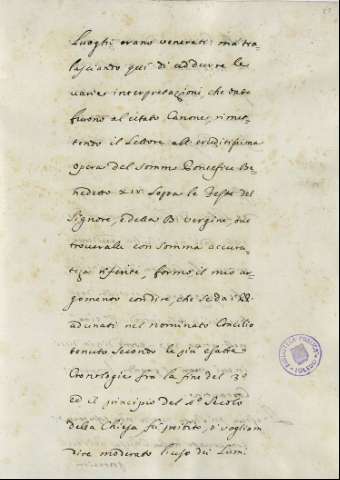 Luoghi erano venerati: ma tra-
lasciando quì di addurre le
varie interpretazioni, che date
furono al citato Canone, rimet-
tendo il Lettore all'eruditissima
opera del sommo Pontefice Be-
nedetto XIV. sopra le Feste del
Signore, e della B. Vergine, ove
trovera le con somma accura-
tezza riferite, formo il mio ar-
gomento con dire, che se da i PP.
adunati nel nominato Concilio
tenuto secondo le più esatte
Cronologie frà la fine del 3º
ed il principio del 4º secolo
della Chiesa fù proibito, ò vogliam
dire moderato l'uso dei Lumi
BIBLIOTECA PUBLICA
TOLEDO